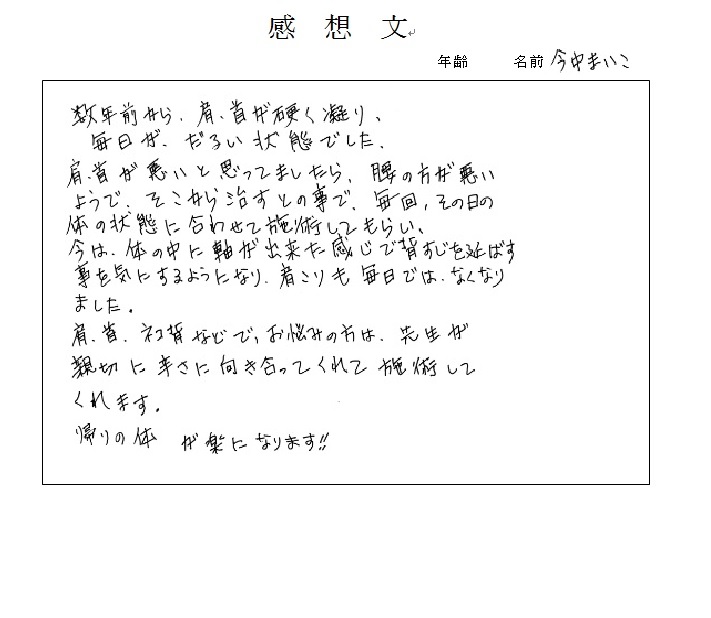 感想文
年齢 名前 今中まいこ
数年前から、肩、首が硬く凝り、
毎日が、だるい状態でした、
肩、首が悪いと思ってましたら、腰の方が悪い
ようで、そこから治すとの事で、毎回、その日の
体の状態に合わせて施術してもらい、
今は、体の中に軸が出来た感じで背すじを延ばす
事を気にするようになり、肩こりも毎日では、なくなり
ました。
肩、首、ネコ背などで、お悩みの方は、先生が
親切に辛さに向き合ってくれて施術して
くれます。
帰りの体 が楽になります!!